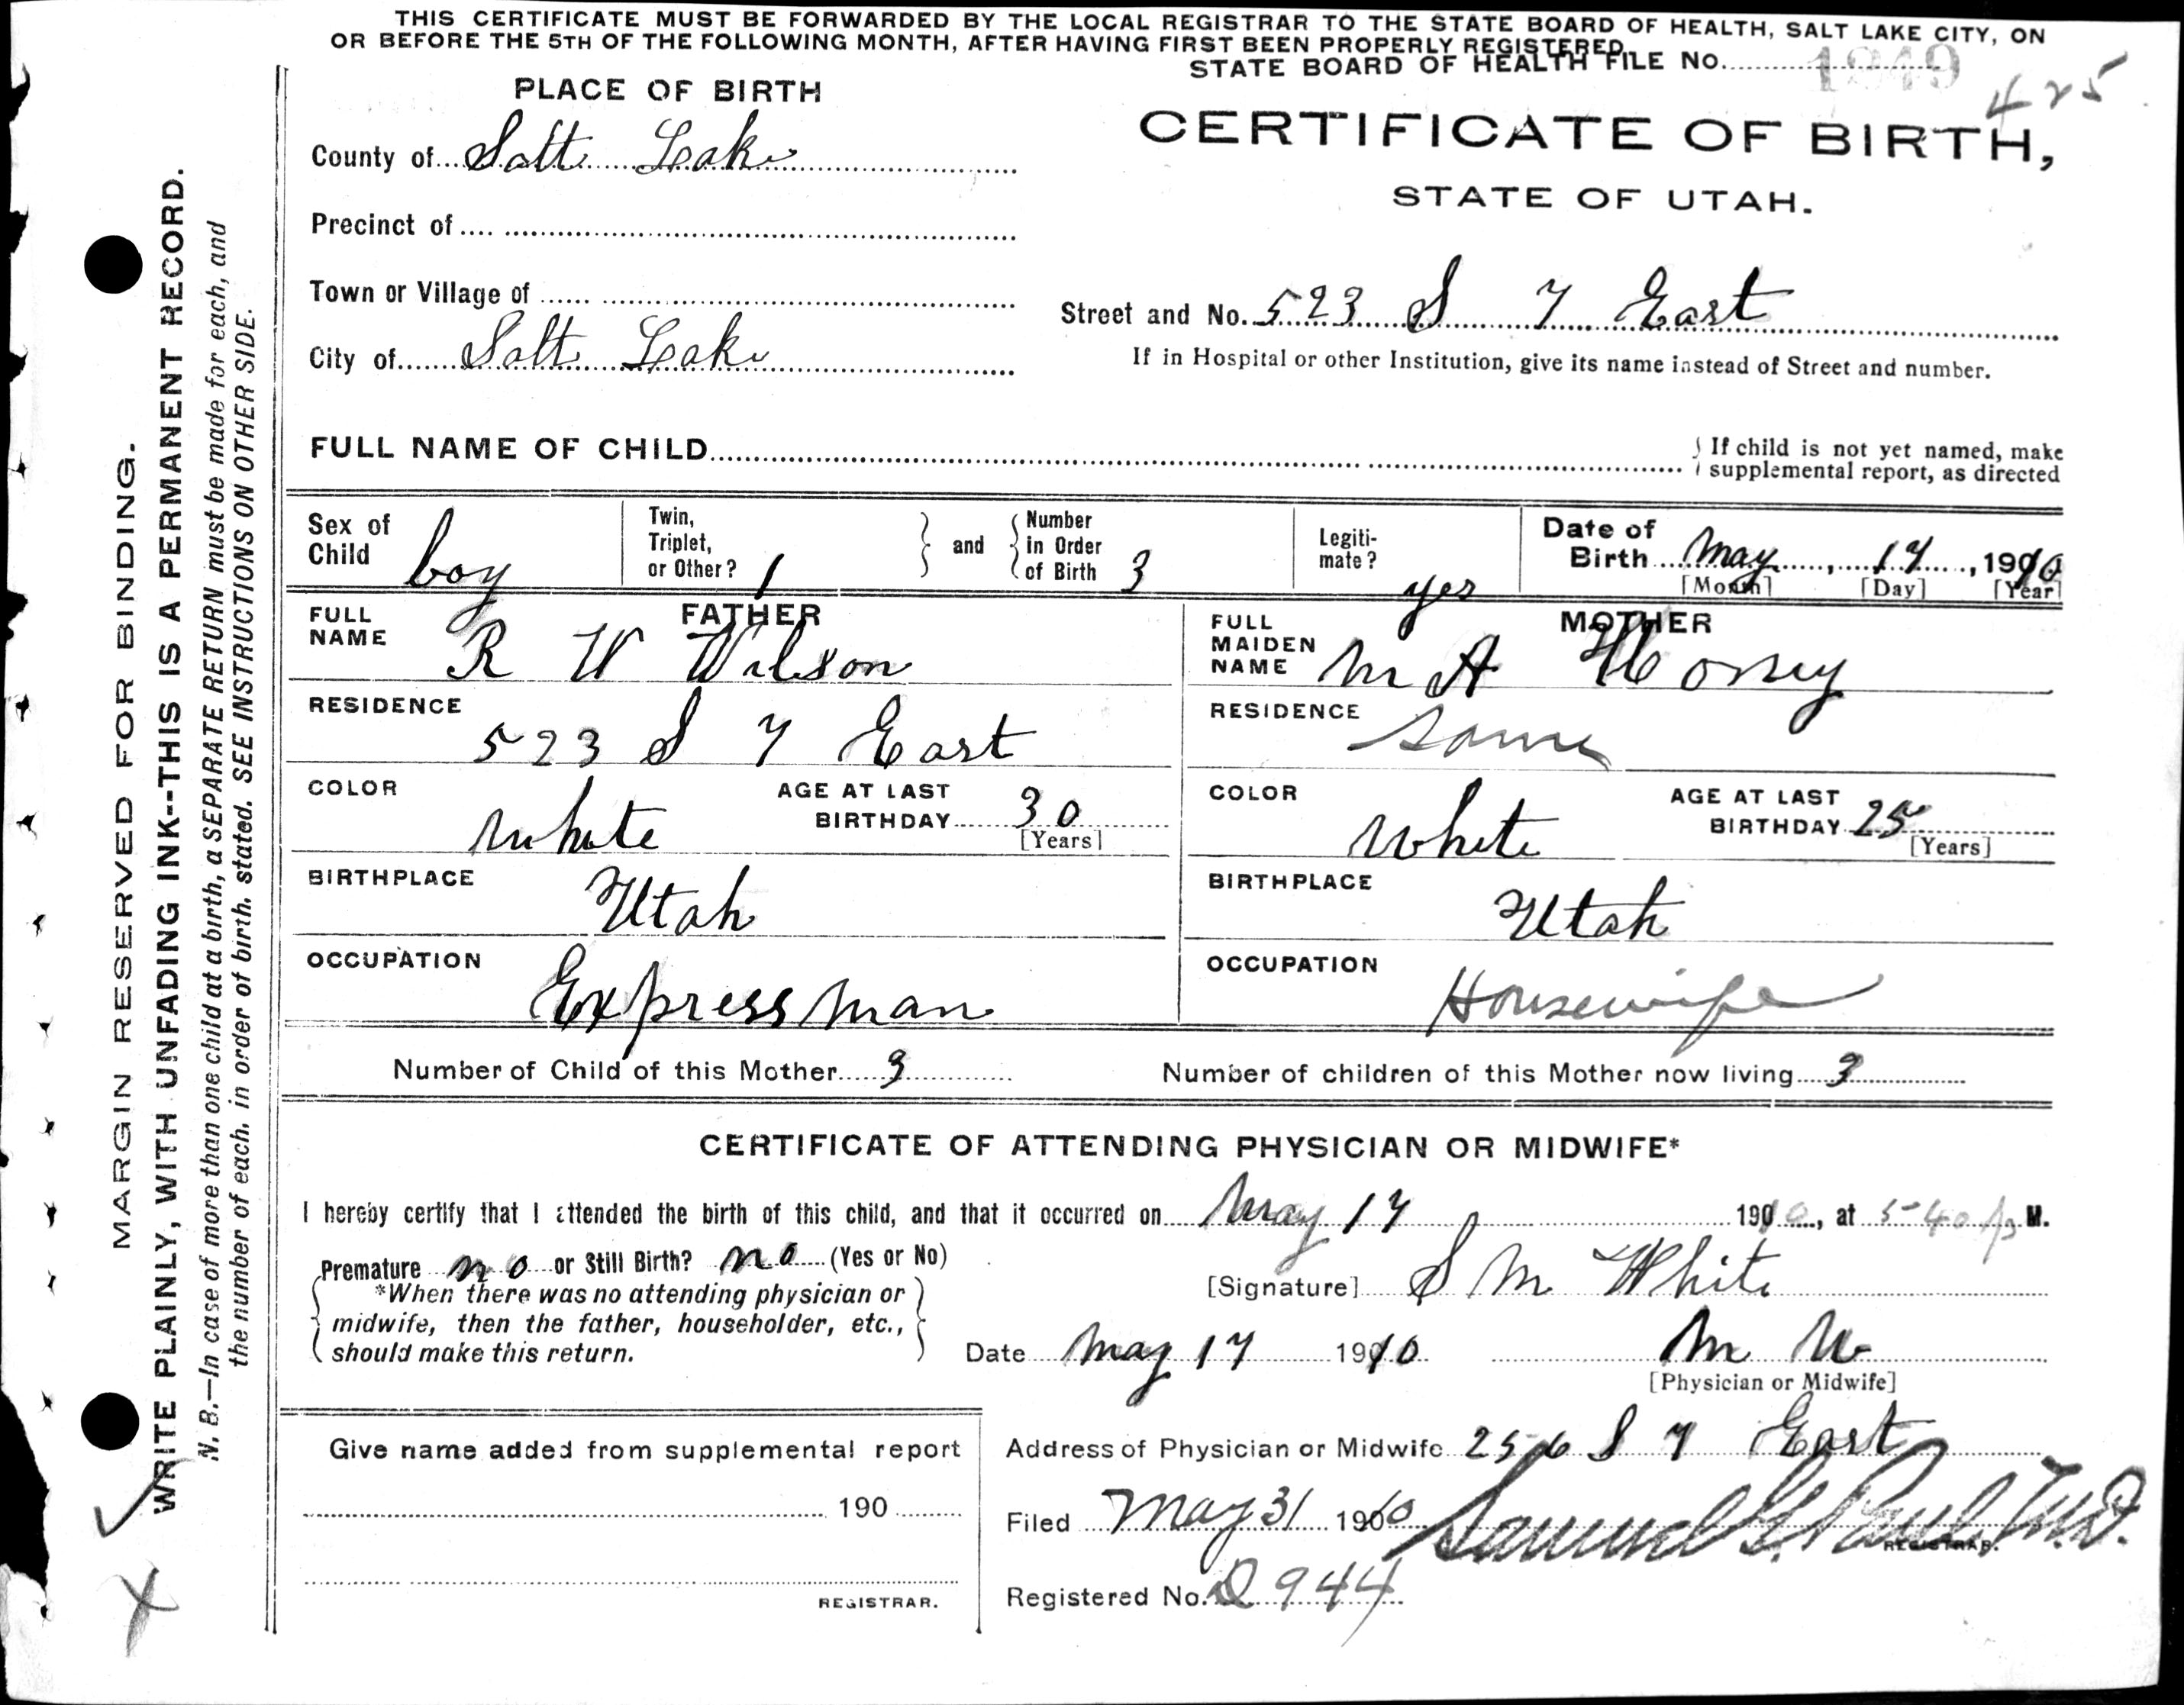 THIS CERTIFICATE MUST BE FORWARDED BY THE LOCAL REGISTRAR TO THE STATE BOARD OF HEALTH, SALT LAKE CITY, ON
OR BEFORE THE 5TH OF THE FOLLOWING MONTH, AFTER HAVING FIRST BEEN PROPERLY REGISTERED.
STATE BOARD OF HEALTH FILE No. 1949
425
PLACE OF BIRTH
CERTIFICATE OF BIRTH,
STATE OF UTAH.
County of Salt Lake
Precinct of
Town or Village of
Street and No. 523 S 7 East
City of Salt Lake
If in Hospital or other Institution, give its name instead of Street and number.
FULL NAME OF CHILD
If child is not yet named, make
supplemental report, as directed
Sex of Child boy
Twin, Triplet, or Other? 1
and
Number in Order of Birth 3
Legiti-mate? yes
Date of Birth May, 17, 1910
[Month] [Day] [Year]
FATHER
FULL NAME R W Wilson
RESIDENCE 523 S 7 East
COLOR white
AGE AT LAST BIRTHDAY 30
[Years]
BIRTHPLACE Utah
OCCUPATION Express man
MOTHER
FULL MAIDEN NAME M A
RESIDENCE Same
COLOR white
AGE AT LAST BIRTHDAY 25
[Years]
BIRTHPLACE Utah
OCCUPATION Housewife
Number of Child of this Mother 3
Number of children of this Mother now living 3
CERTIFICATE OF ATTENDING PHYSICIAN OR MIDWIFE*
I hereby certify that I attended the birth of this child, and that it occurred on May 17 1910, at 5-40 p M.
Premature no or Still Birth? no (Yes or No)
[Signature] S M White
*When there was no attending physician or
midwife, then the father, householder, etc.,
should make this return.
Date May 17 1910
M W
[Physician or Midwife]
Give name added from supplemental report
190
REGISTRAR.
Address of Physician or Midwife 256 S 7 East
Filed May 31 1910 Samuel G. Paul, M.D.
REGISTRAR.
Registered No. D 944
MARGIN RESERVED FOR BINDING.
WRITE PLAINLY, WITH UNFADING INK--THIS IS A PERMANENT RECORD.
N. B.—In case of more than one child at a birth, a SEPARATE RETURN must be made for each, and
the number of each, in order of birth, stated. SEE INSTRUCTIONS ON OTHER SIDE.